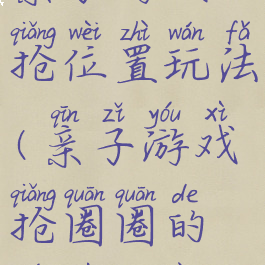 qiǎng wèi zhì wán fǎ
抢位置玩法
qīn zǐ yóu xì
(亲子游戏
qiǎng quān quān de
抢圈圈的